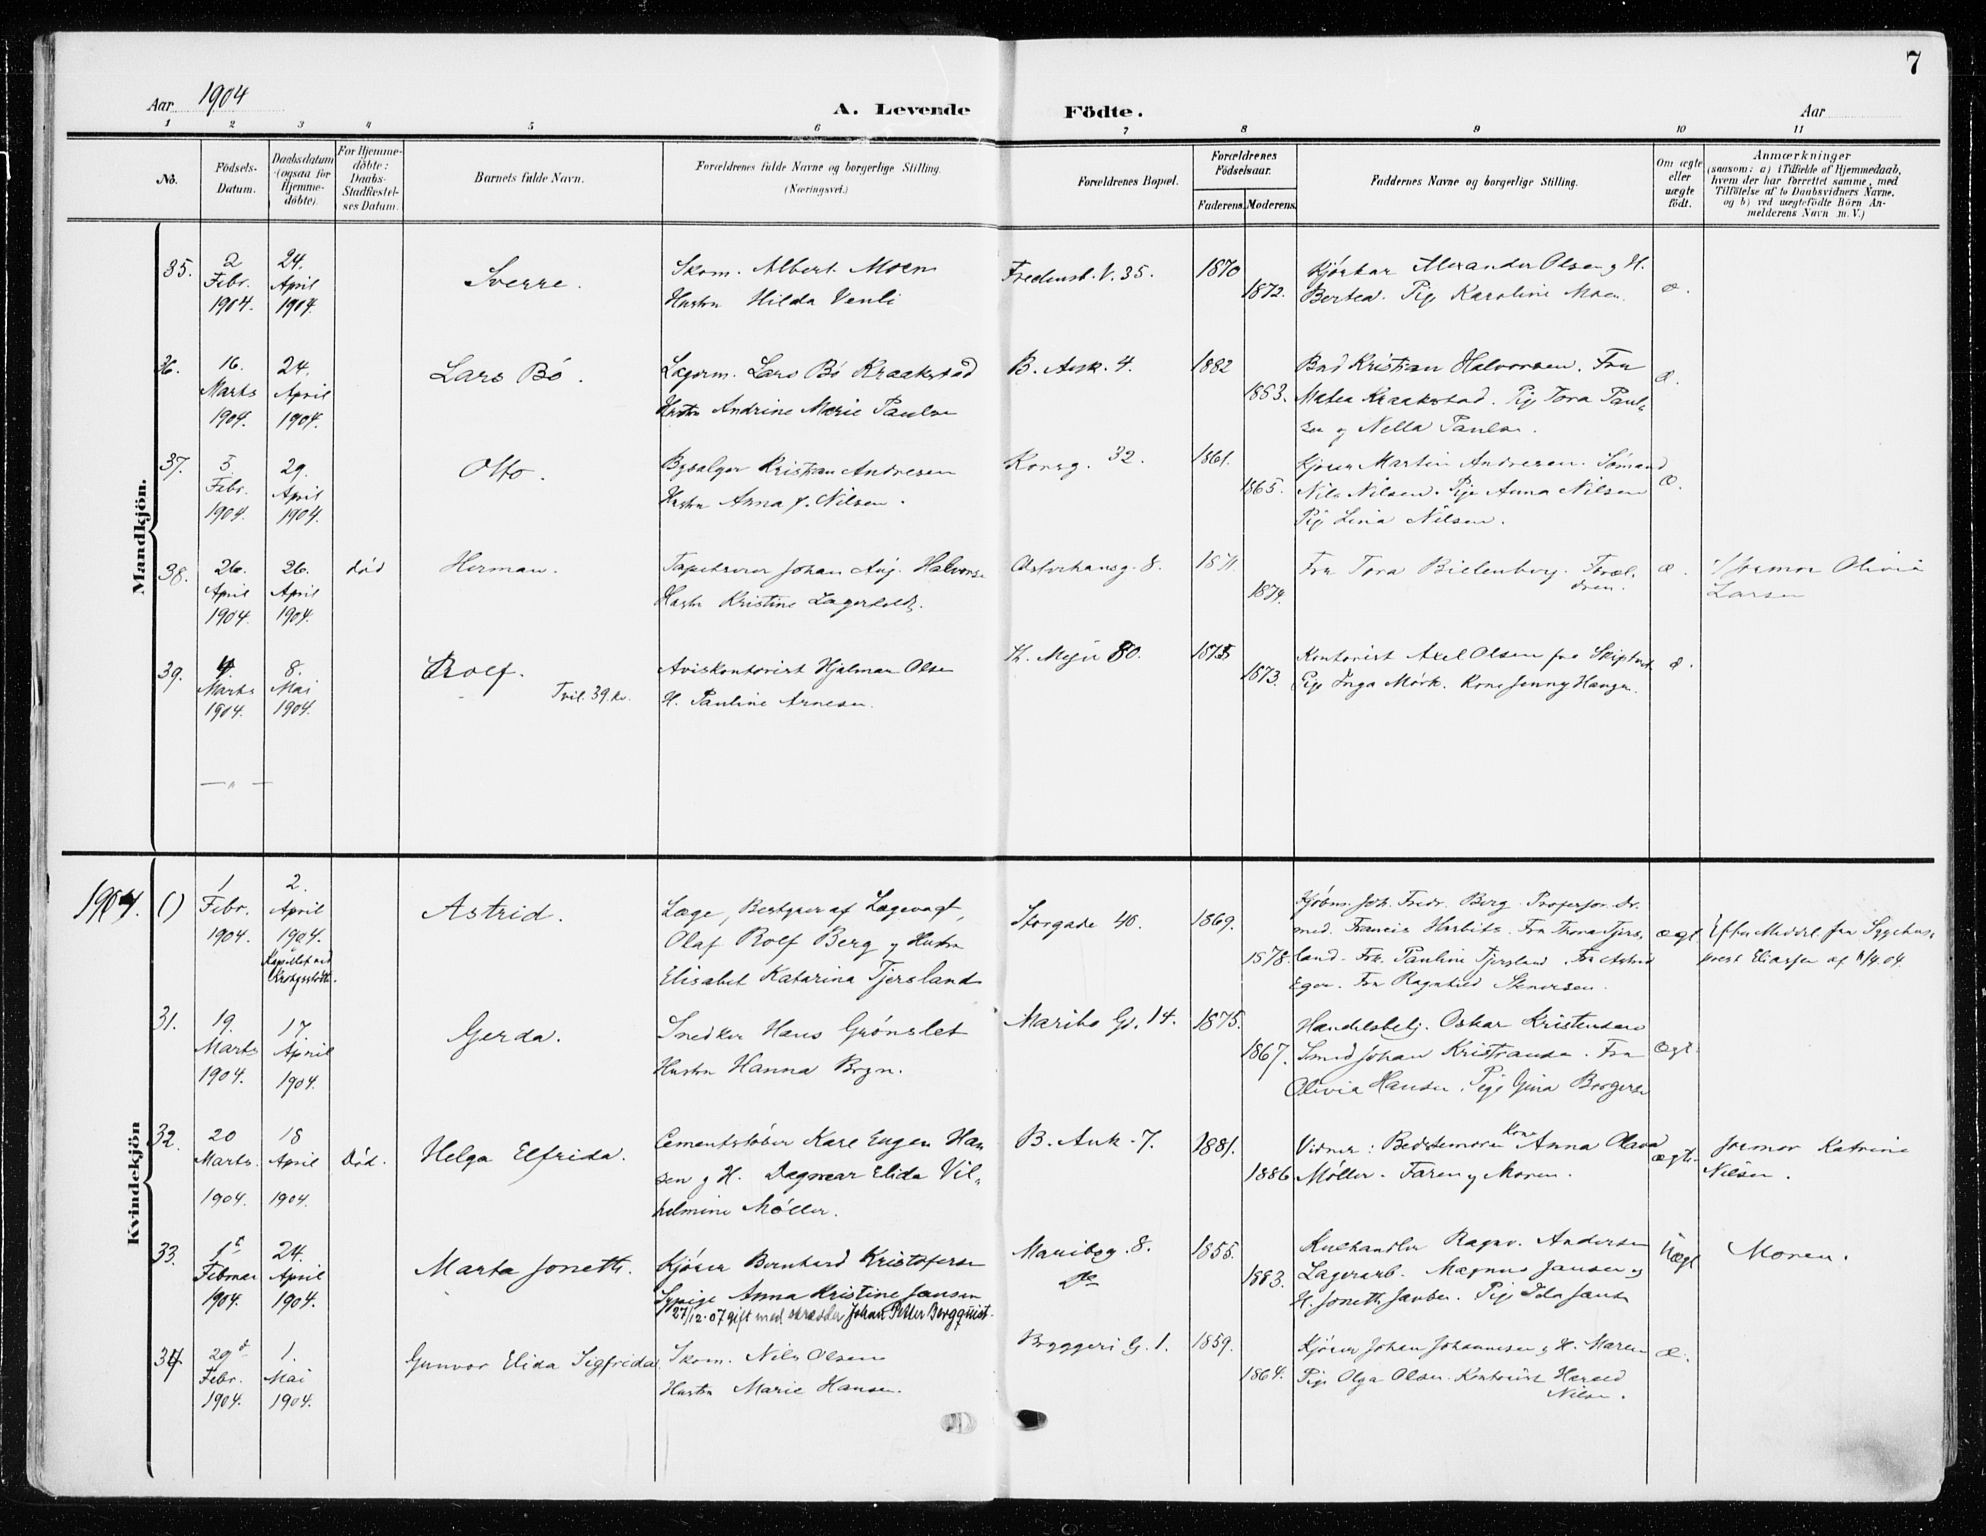 7
Aar 1904
A. Levende Födte.
Aar
1 2 3 4 5 6 7 8 9 10 11
No.
Födsels-Datum.
Daabsdatum (ogsaa for Hjemme-döbte).
For Hjemme-döbte: Daabs-Stadfæstel-ses Datum.
Barnets fulde Navn.
Forældrenes fulde Navne og borgerlige Stilling.
(Næringsvei.)
Forældrenes Bopæl.
Forældrenes Födselsaar.
Faderens. Moderens.
Faddernes Navne og borgerlige Stilling.
Om ægte eller uægte födt.
Anmærkninger
(saasom: a) i Tilfælde af Hjemmedaab,
hvem der har forrettet samme, med
Tilföielse af to Daabsvidners Navne.
og b) ved uægtefödte Börn An-
melderens Navn m. V.)
Mandkjön.
35. 2 Febr. 1904. 24. April 1904. Sverre.
Skom. Albert Moen
Hustru Hilda Venli
Fredensb. V. 35. 1870 1872.
Alexander Olsen og H.
Bertea. Pige Karoline Moen. æ.
36. 16. Marts 1904. 24. April 1904. Lars Bö.
Lagerm. Lars Bö Kraakstad
Hustru Andrine Marie Paulse
B. Ank. 4. 1882 1883.
Kristian Halvorsen. Fru
Matea Kraakstad. Pige Tora Paul-
sen og Nella Paulse. æ.
37. 5. Febr. 1904. 29. April 1904. Otto.
Kristian Andresen
Hustru Anna f. Nilsen.
Korsg. 32. 1861. 1865.
Kjører Martin Andresen. Sømand
Nils Nilsen. Pige Anna Nilsen
Pige Lina Nilsen. æ.
38. 26. April 1904. 26. April 1904. död Herman.
Tapetserer Johan Aug. Halvorse
Hustr Kristine Lagerholdt.
8. 1871. 1874.
Fru Tora Bielenberg. Foræl-
dren. æ. Jormor Olivia
Larsen
39. 4. Marts 1904. 8. Mai 1904. Rolf.
Tvil. 39. kv.
Aviskontorist Hjalmar Olse
H. Pauline Arnesen.
Th. Mejer 80. 1875 1873.
Kontorist Axel Olsen fra
Pige Inga Mörk. Kone Jenny Hansen. æ.
— " —
Kvindekjön
1904. () 1 Febr. 1904. 2. April 1904. Kapellet ved Krohgsstötte. Astrid.
Læge, Bestyrer af Lægevagt,
Olaf Rolf Berg og Hustru
Elisabet Katarina Tjersland
Storgade 40. 1869. 1878.
Kjøbm. Joh. Fredr. Berg. Professor Dr.
med. Francis Harbitz. Fru Thora Tjers-
land. Frk. Pauline Tjersland. Fru Astrid
Eger. Fru Ragnhild Stenersen. ægt
Efter Meddel. fra Sygehus-
prest Eliassen af 11/4.04.
31. 19. Marts 1904. 17. April 1904. Gerda.
Snedker Hans Grönslet
Hustru Hanna Bryn.
Maribo Gd. 14. 1875. 1867.
Handelsbetj. Oskar Kristensen
Smed Johan Kristiansen. Fru
Olivia Hansen. Pige Gina Borgerse ægt.
32. 20 Marts 1904. 18 April 1904. Död. Helga Elfrida.
Cementstöber Karl Eugen Han-
sen og H. Dagmar Elida Vil-
helmine Möller.
B. Ank. 7. 1881. 1886
Vidner: Bedstemoren Kone Anna Olava
Möller. Faren og Moren. ægte. Jormor Katrine
Nilsen.
33. 1ste Februar 1904. 24. April 1904. Marta Joneth.
Kjører Bernhard Kristofersen
Sypige Anna Kristine Jansen
27/12.07 gift med skrædder Johan Petter Bergquist.
Maribog. 8. 1855. 1883.
Kulhandler Ragnv. Andersen
Lagerarb. Magnus Jansen og
H. Joneth Jansen. Pige Ida Janse Uægt Moren.
34 29d Febr. 1904. 1. Mai 1904. Gunvor Elida Sigfrida.
Skom. Nils Olsen
Hustru Marie Hansen.
Bryggeri G. 1. 1859. 1864.
Kjører Johan Johannesen og H. Maren
Pige Olga Olsen. Kontorist Harald
Nilsen. æ.